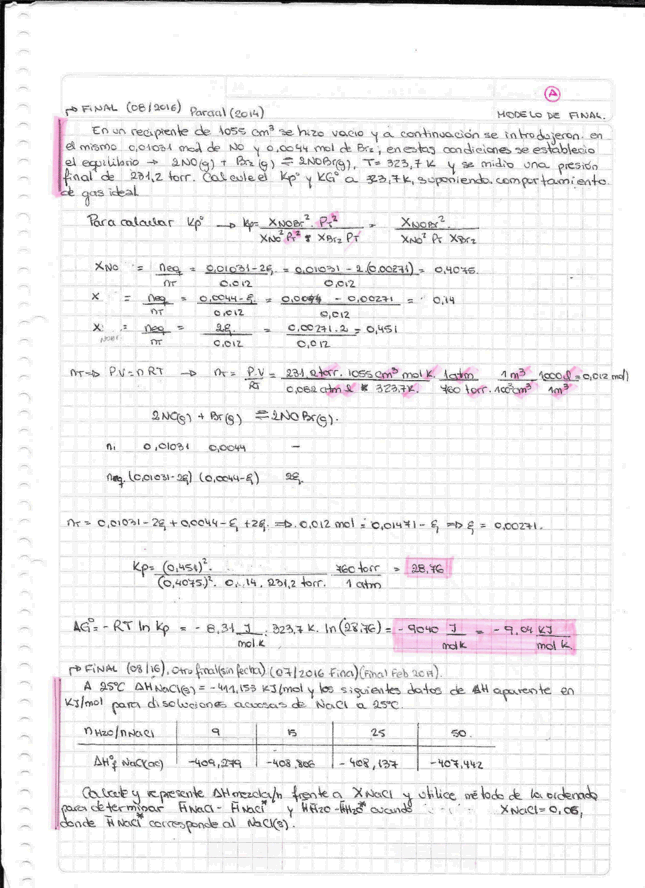 A
→ FINAL (08/2016) Parcial (2014)
MODELO DE FINAL.
En un recipiente de 1055 cm³ se hizo vacio y a continuación se introdujeron en
el mismo 0,01031 mol de NO y 0,0044 mol de Br₂, en estas condiciones se establecio
el equilibrio → 2NO(g) + Br₂(g) ⇌ 2NOBr(g), T= 323,7 K y se midio una presión
final de 231,2 torr. Calcule el Kp° y KG° a 323,7K, suponiendo comportamiento
de gas ideal
Para calcular Kp° → Kp = XNOBr² PT² / XNO² PT² * XBr₂ PT = XNOBr² / XNO² PT XBr₂
XNO = neq / nT = 0,01031-2ξ / 0,012 = 0,01031 - 2(0,00271) / 0,012 = 0,4075.
X = neq / nT = 0,0044-ξ / 0,012 = 0,0044 - 0,00271 / 0,012 = 0,14
XNOBr = neq / nT = 2ξ / 0,012 = 0,00271.2 / 0,012 = 0,451
nT ⇒ P.V = nRT → nT = P.V / RT = 231,2 torr. 1055 cm³ mol K. / 0,082 atm l * 323,7K. 1 atm / 760 torr. 1 m³ / 100³ cm³ 1000 l / 1m³ = 0,012 mol
2NO(g) + Br(g) ⇌ 2NOBr(g).
ni 0,01031 0,0044 -
neq. (0,01031-2ξ) (0,0044-ξ) 2ξ
nT = 0,01031 - 2ξ + 0,0044 - ξ + 2ξ ⇒ 0,012 mol = 0,01471 - ξ ⇒ ξ = 0,00271.
Kp = (0,451)². / (0,4075)². 0,14. 231,2 torr. 760 torr / 1 atm = 28,76
ΔG° = - RT ln Kp = - 8,31 J / mol K . 323,7 K. ln (28,76) = - 9040 J / mol K = - 9,04 KJ / mol K.
→ FINAL (08/16), Otro final (sin fecha) (07/2016 Final) (Final Feb 2017).
A 25°C ΔH NaCl(s) = -411,153 KJ/mol y los siguientes datos de ΔH aparente en
KJ/mol para disoluciones acuosas de NaCl a 25°C.
nH2O/nNaCl 9 15 25 50.
ΔH°f NaCl(ac) -409,279 -408,806 -408,137 -407,442
Calcule y represente ΔHmezcla/n frente a XNaCl y utilice método de la ordenada
para determinar H̄NaCl - H̄NaCl* y H̄H2O - H̄H2O* cuando XNaCl = 0,05,
donde H̄NaCl* corresponde al NaCl(s).